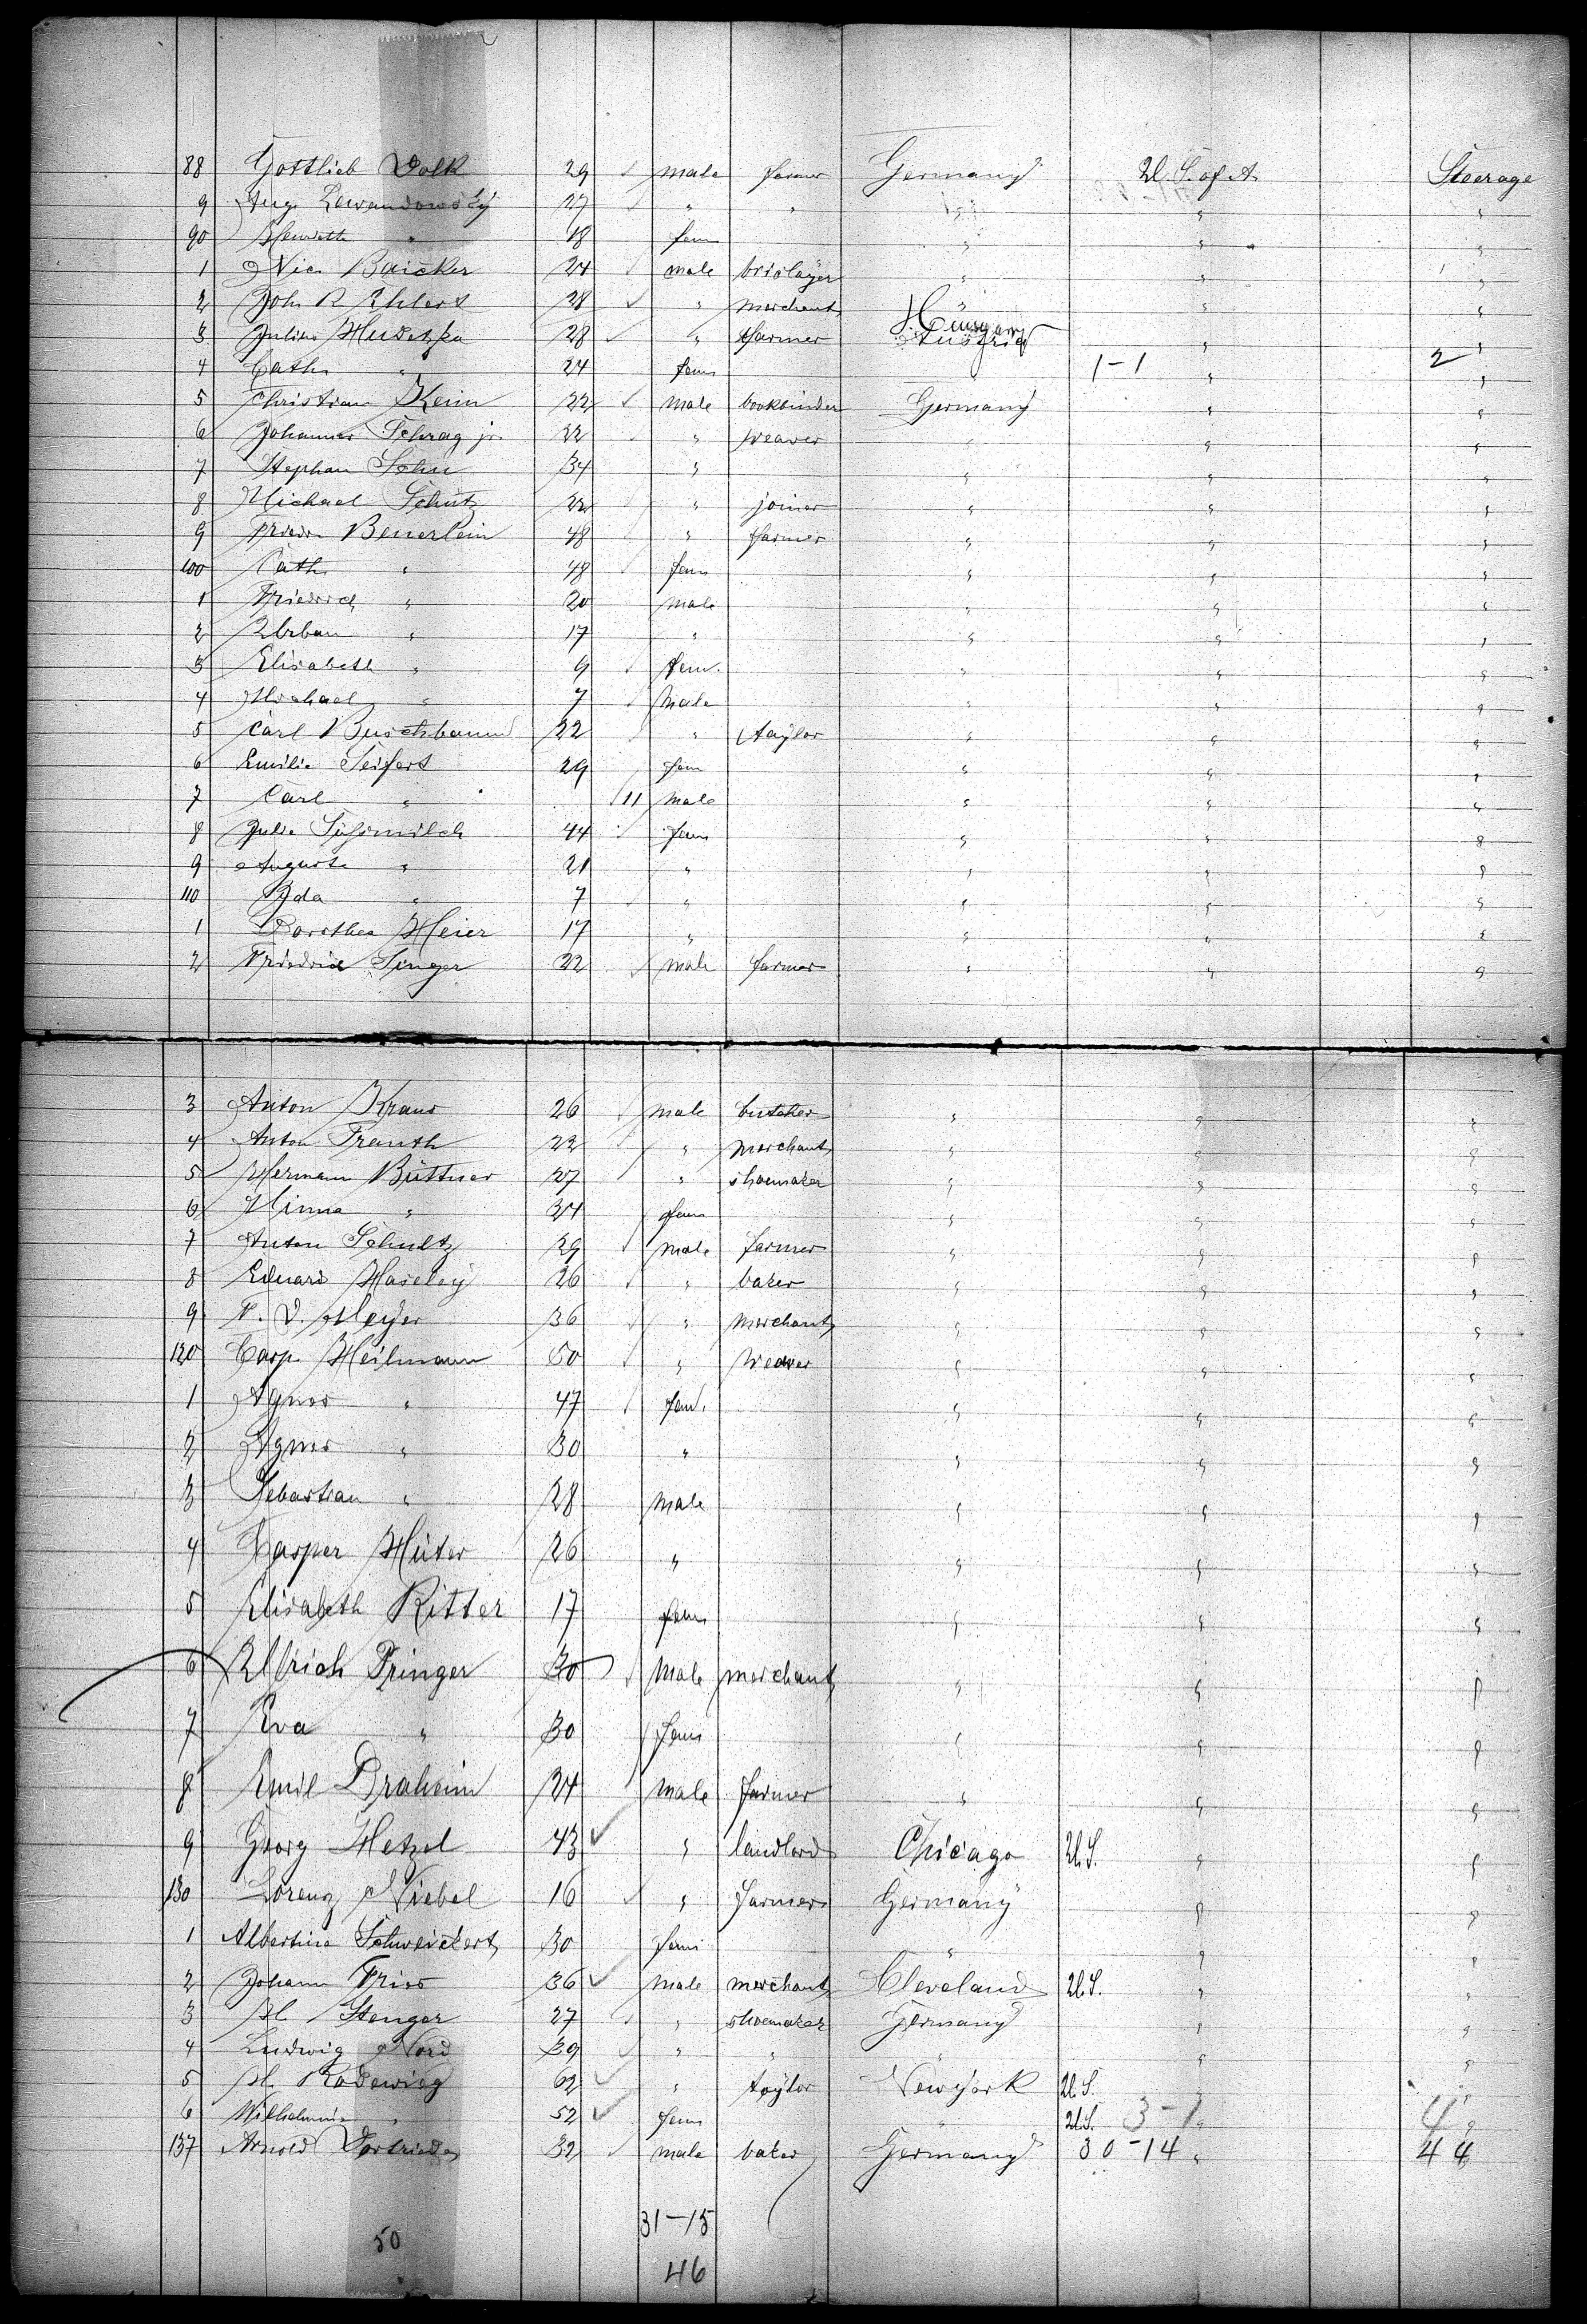 88 Gottlieb Volk 29 male farmer Germany U. S. of A. Steerage
9 Aug. Lewandowsky 27 " " " " "
90 Henriette " 18 fem " " "
1 Nic. Baicker 24 male briclayer " " "
2 Joh. R. Ehlers 28 " merchant " " "
3 Julius Hudetzka 28 " farmer Hungary Austria " "
4 Cath. " 24 fem 1-1 " 2 "
5 Christian Keim 22 male bookbinder Germany " "
6 Johannes Schrag jr. 22 " weaver " " "
7 Stephan Sohn 34 " " " "
8 Michael Schutz 22 " joiner " " "
9 Friedr. Beuerlein 48 " farmer " " "
100 Cath. " 48 fem " " "
1 Friedrich " 20 male " " "
2 Urban " 17 " " " "
3 Elisabeth " 9 fem. " " "
4 Michael " 7 male " " "
5 Carl Buschbaum 22 " taylor " " "
6 Emilie Seifert 29 fem " " "
7 Carl " 11 male " " "
8 Julie Süssmilch 44 fem " " "
9 Auguste " 21 " " " "
110 Ida " 7 " " " "
1 Dorothea Meier 17 " " " "
2 Friedrich Singer 22 male farmer " " "
3 Anton Kraus 26 male butcher " " "
4 Anton Trauth 22 " merchant " " "
5 Hermann Büttner 27 " shoemaker " " "
6 Minna " 24 fem " " "
7 Anton Schultz 29 male farmer " " "
8 Eduard Haseley 26 " baker " " "
9 F. D. Meyer 36 " merchant " " "
120 Casp. Heilmann 50 " weaver " " "
1 Agnes " 47 fem. " " "
2 Agnes " 30 " " " "
3 Sebastian " 28 male " " "
4 Casper Hüter 26 " " " "
5 Elisabeth Ritter 17 fem " " "
6 Ullrich Pringer 30 male merchant " " "
7 Eva " 30 fem " " "
8 Emil Draheim 24 male farmer " " "
9 Georg Hetzel 43 " landlord Chicago U.S. " "
130 Lorenz Niebel 16 " farmer Germany " "
1 Albertine Schweickert 30 fem " " "
2 Johann Fries 36 male merchant Cleveland U.S. " "
3 H. Stenger 27 " shoemaker Germany " "
4 Ludwig Nord 39 " " " " "
5 H. Radewieg 62 " taylor Newyork U.S. " "
6 Wilhelmine " 52 fem " U.S. 3-1 " 4 "
137 Arnold 32 male baker Germany 30-14 " 44
31-15
50
46